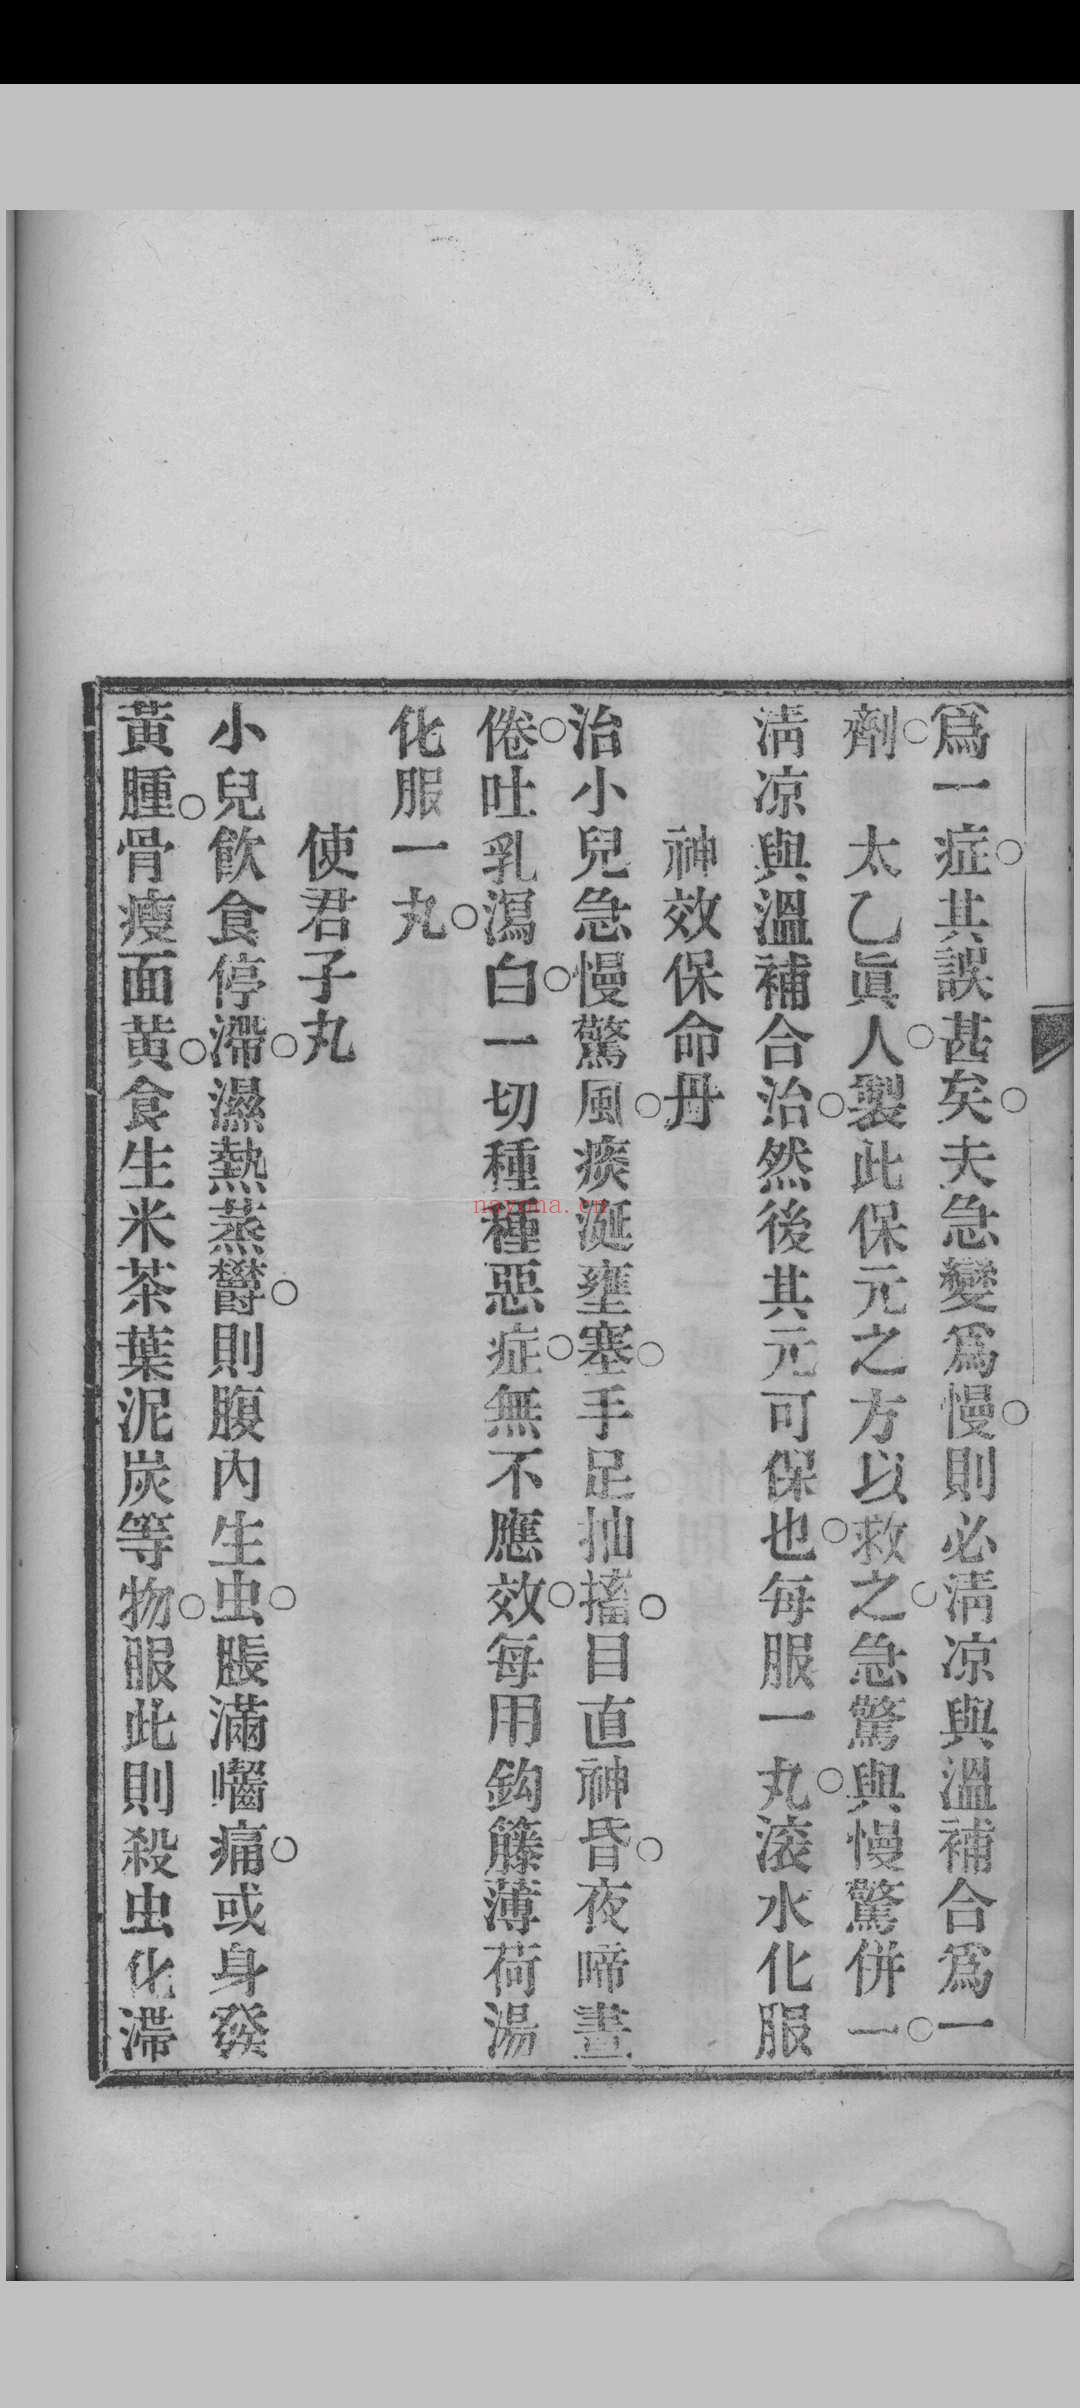 爲一症○其誤甚矣○夫急變爲慢○則必淸凉與溫補合爲一
劑○ 太乙眞人○製此保元之方以救之○急驚與慢驚併一○
淸凉與溫補合治○然後其元可保也○每服一丸○滚水化服
神效保命丹
治小兒急慢驚風○痰涎壅塞○手足抽搐○目直神昏○夜啼晝
倦○吐乳瀉白○一切種種惡症○無不應效○每用鈎籐薄荷湯
化服一丸○
使君子丸
小兒飮食停滯○濕熱蒸欝○則腹內生虫○脹滿嚙痛○或身發
黃腫○骨瘦面黄○食生米茶葉泥炭等物○服此則殺虫化滯